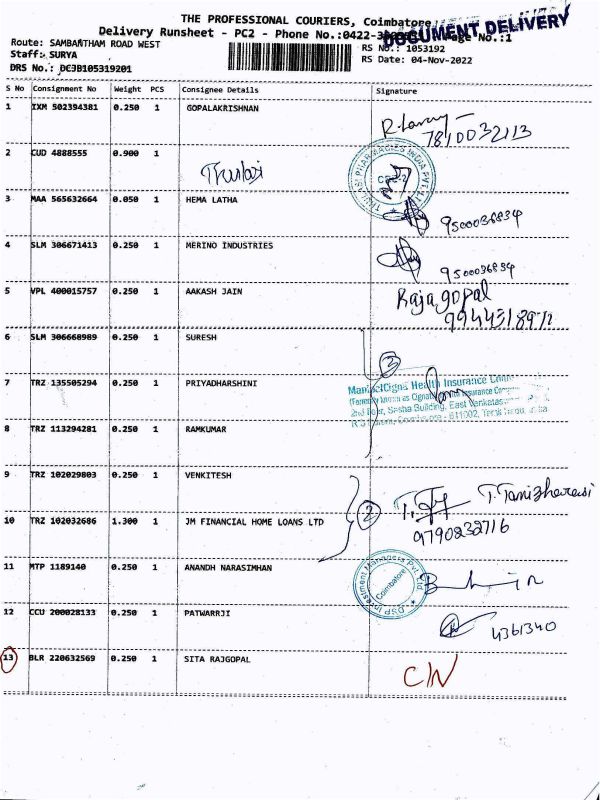 THE PROFESSIONAL COURIERS, Coimbatore
Delivery Runsheet - PC2 - Phone No.:0422- Page No.:1
DOCUMENT DELIVERY
Route: SAMBANTHAM ROAD WEST
RS No.: 1053192
Staff: SURYA
RS Date: 04-Nov-2022
DRS No.: DC3B105319201
S No Consignment No Weight PCS Consignee Details Signature
1 IXM 502394381 0.250 1 GOPALAKRISHNAN
7810032113
2 CUD 4888555 0.900 1
Thulasi
THULASI PHARMACIES INDIA PVT LTD
3 MAA 565632664 0.050 1 HEMA LATHA
9500036834
4 SLM 306671413 0.250 1 MERINO INDUSTRIES
9500036834
5 VPL 400015757 0.250 1 AAKASH JAIN
Rajagopal
6 SLM 306668989 0.250 1 SURESH
3
7 TRZ 135505294 0.250 1 PRIYADHARSHINI
Health Insurance
2nd Floor, Sasha Building, East Venkatas
8 TRZ 113294281 0.250 1 RAMKUMAR
9 TRZ 102029803 0.250 1 VENKITESH
2
T. Tamizharasi
10 TRZ 102032686 1.300 1 JM FINANCIAL HOME LOANS LTD
9790232716
11 MTP 1189140 0.250 1 ANANDH NARASIMHAN
DSP Investment Managers Pvt. Ltd.
Coimbatore
12 CCU 200028133 0.250 1 PATWARRJI
4361340
13 BLR 220632569 0.250 1 SITA RAJGOPAL
C/N